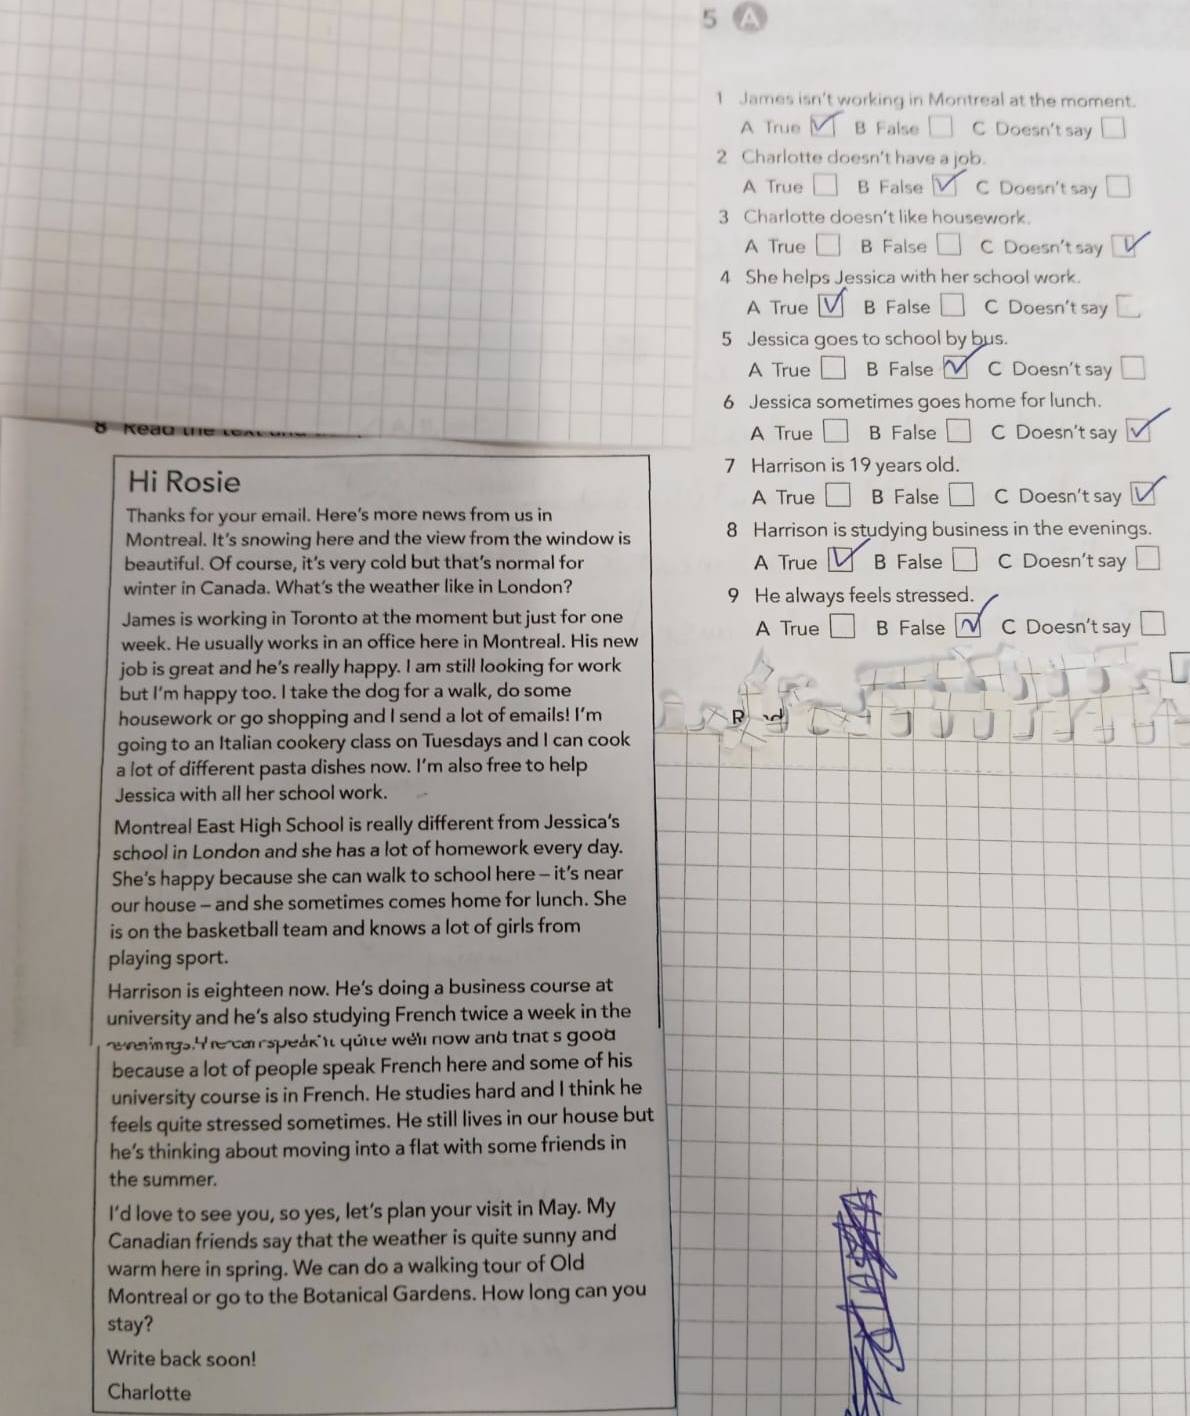 5 A
1 James isn't working in Montreal at the moment.
A True B False C Doesn't say
2 Charlotte doesn't have a job.
A True B False C Doesn't say
3 Charlotte doesn't like housework.
A True B False C Doesn't say
4 She helps Jessica with her school work.
A True B False C Doesn't say
5 Jessica goes to school by bus.
A True B False C Doesn't say
6 Jessica sometimes goes home for lunch.
A True B False C Doesn't say
7 Harrison is 19 years old.
A True B False C Doesn't say
8 Harrison is studying business in the evenings.
A True B False C Doesn't say
9 He always feels stressed.
A True B False C Doesn't say
8 Read the text
Hi Rosie
Thanks for your email. Here's more news from us in
Montreal. It's snowing here and the view from the window is
beautiful. Of course, it's very cold but that's normal for
winter in Canada. What's the weather like in London?
James is working in Toronto at the moment but just for one
week. He usually works in an office here in Montreal. His new
job is great and he's really happy. I am still looking for work
but I'm happy too. I take the dog for a walk, do some
housework or go shopping and I send a lot of emails! I'm
going to an Italian cookery class on Tuesdays and I can cook
a lot of different pasta dishes now. I'm also free to help
Jessica with all her school work.
Montreal East High School is really different from Jessica's
school in London and she has a lot of homework every day.
She's happy because she can walk to school here – it's near
our house – and she sometimes comes home for lunch. She
is on the basketball team and knows a lot of girls from
playing sport.
Harrison is eighteen now. He's doing a business course at
university and he's also studying French twice a week in the
evenings. He can speak it quite well now and that's good
because a lot of people speak French here and some of his
university course is in French. He studies hard and I think he
feels quite stressed sometimes. He still lives in our house but
he's thinking about moving into a flat with some friends in
the summer.
I'd love to see you, so yes, let's plan your visit in May. My
Canadian friends say that the weather is quite sunny and
warm here in spring. We can do a walking tour of Old
Montreal or go to the Botanical Gardens. How long can you
stay?
Write back soon!
Charlotte